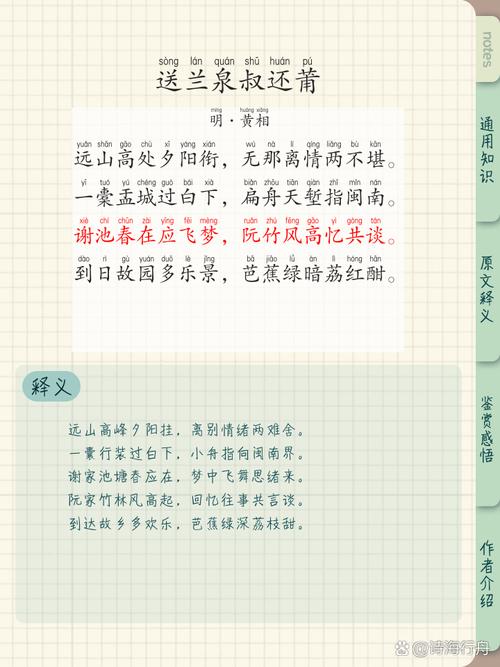 notes
sòng lán quán shū huán pú
送兰泉叔还莆
míng huáng xiāng
明·黄相
yuǎn shān gāo chù xī yáng xián wú nà lí qíng liǎng bù kān
远山高处夕阳衔，无那离情两不堪。
yī tuó yú chéng guò bái xià piān zhōu tiān qiàn zhǐ mǐn nán
一橐盂城过白下，扁舟天堑指闽南。
xiè chí chūn zài yīng fēi mèng ruǎn zhú fēng gāo yì gòng tán
谢池春在应飞梦，阮竹风高忆共谈。
dào rì gù yuán duō lè jǐng bā jiāo lǜ àn lì hóng hān
到日故园多乐景，芭蕉绿暗荔红酣。
释义
远山高峰夕阳挂，离别情绪两难舍。
一囊行装过白下，小舟指向闽南界。
谢家池塘春应在，梦中飞舞思绪来。
阮家竹林风高起，回忆往事共言谈。
到达故乡多欢乐，芭蕉绿深荔枝甜。
通用知识
原文释义
鉴赏感悟
作者介绍
Bai百科@诗海行舟